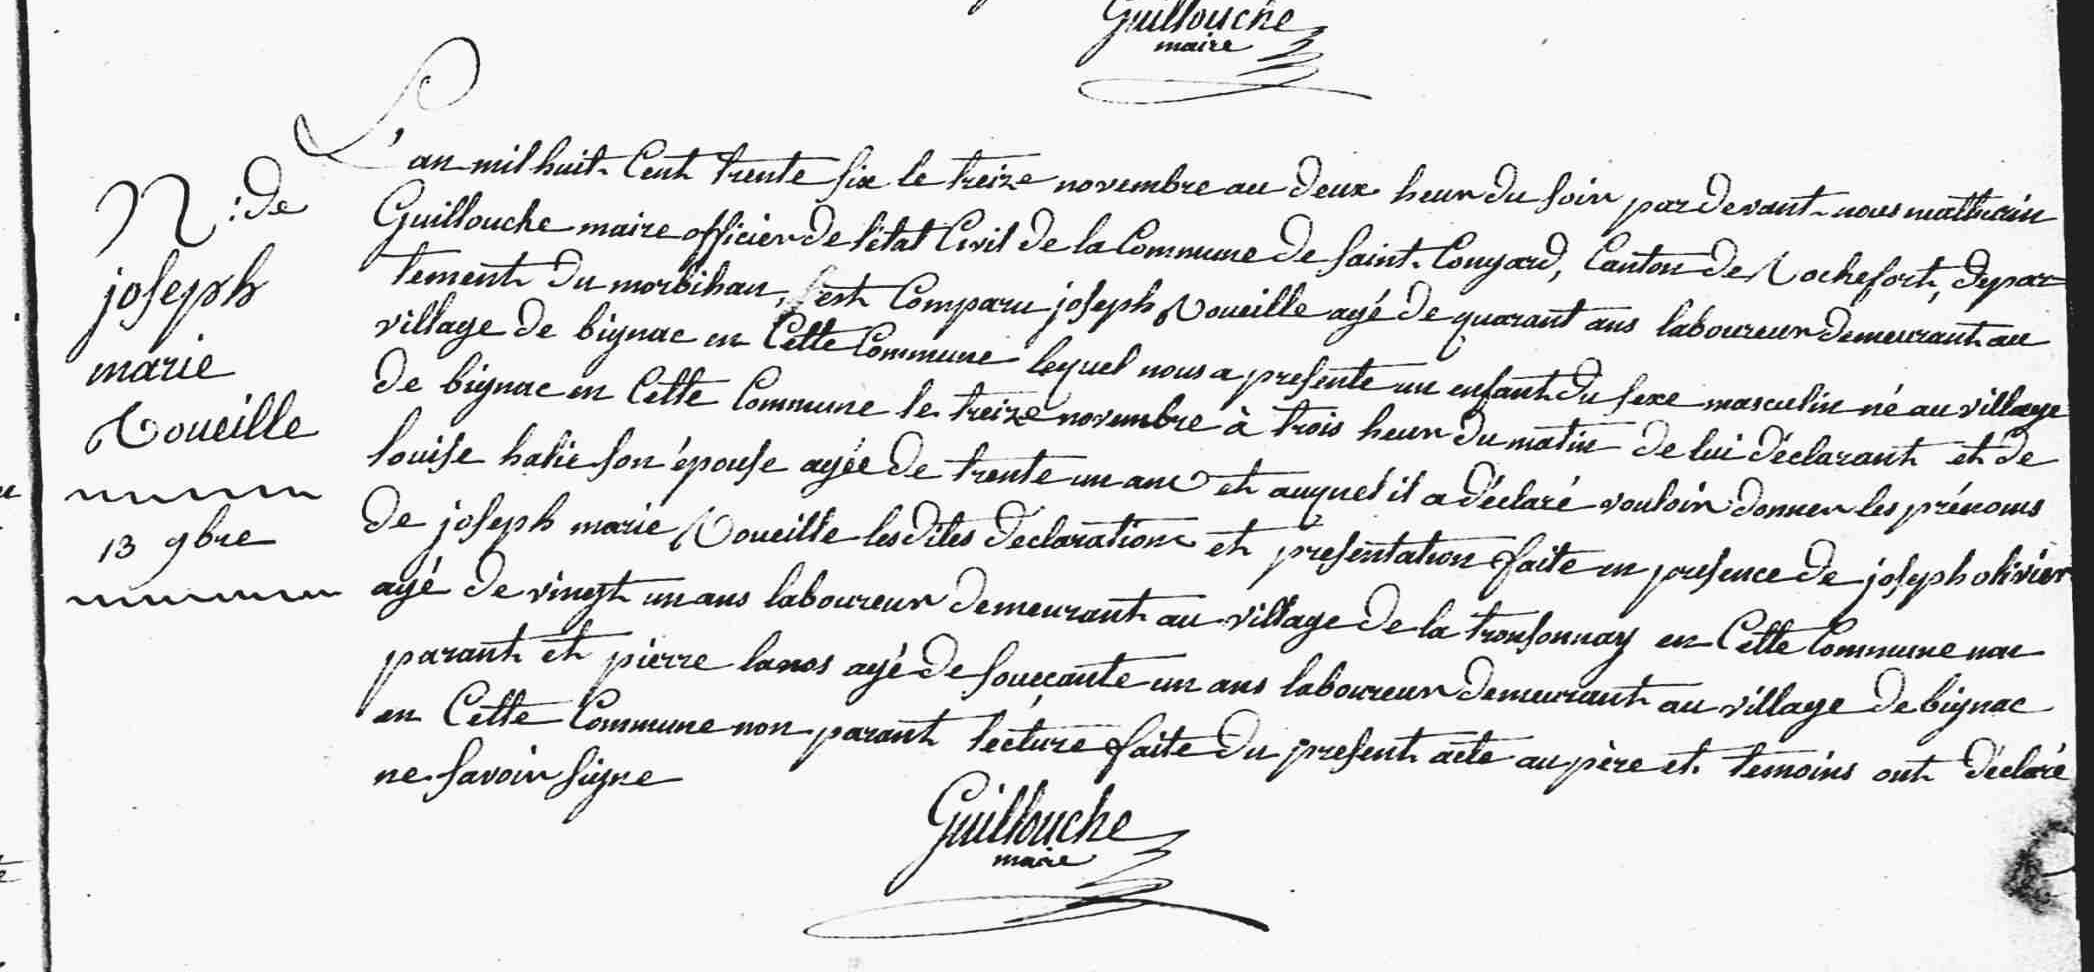 Guillouche
maire
L'an mil huit Cent trente six le treize novembre au deux heur du soir par devant nous mathurin
Guillouche maire officier de l'état Civil de la Commune de Saint Congard, Canton de Rochefort, depar
tement du morbihan, s'est Comparu joseph Roueille agé de quarant ans laboureur demeurant au
village de bignac en Cette Commune lequel nous a presenté un enfant du sexe masculin né au village
de bignac en Cette Commune le treize novembre à trois heur du matin de lui déclarant et de
louise halie son épouse agée de trente un ans et auquel il a déclaré vouloir donner les prénoms
de joseph marie Roueille les dites déclaration et presentation faite en presence de joseph olivier
agé de vingt un ans laboureur demeurant au village de la tronsonnay en Cette Commune non
parant et pierre lanos agé de souecante un ans laboureur demeurant au village de bignac
en Cette Commune non parant lecture faite du present acte au père et temoins ont déclaré
ne savoir signe
N. de
joseph
marie
Roueille
13 9bre
Guillouche
maire